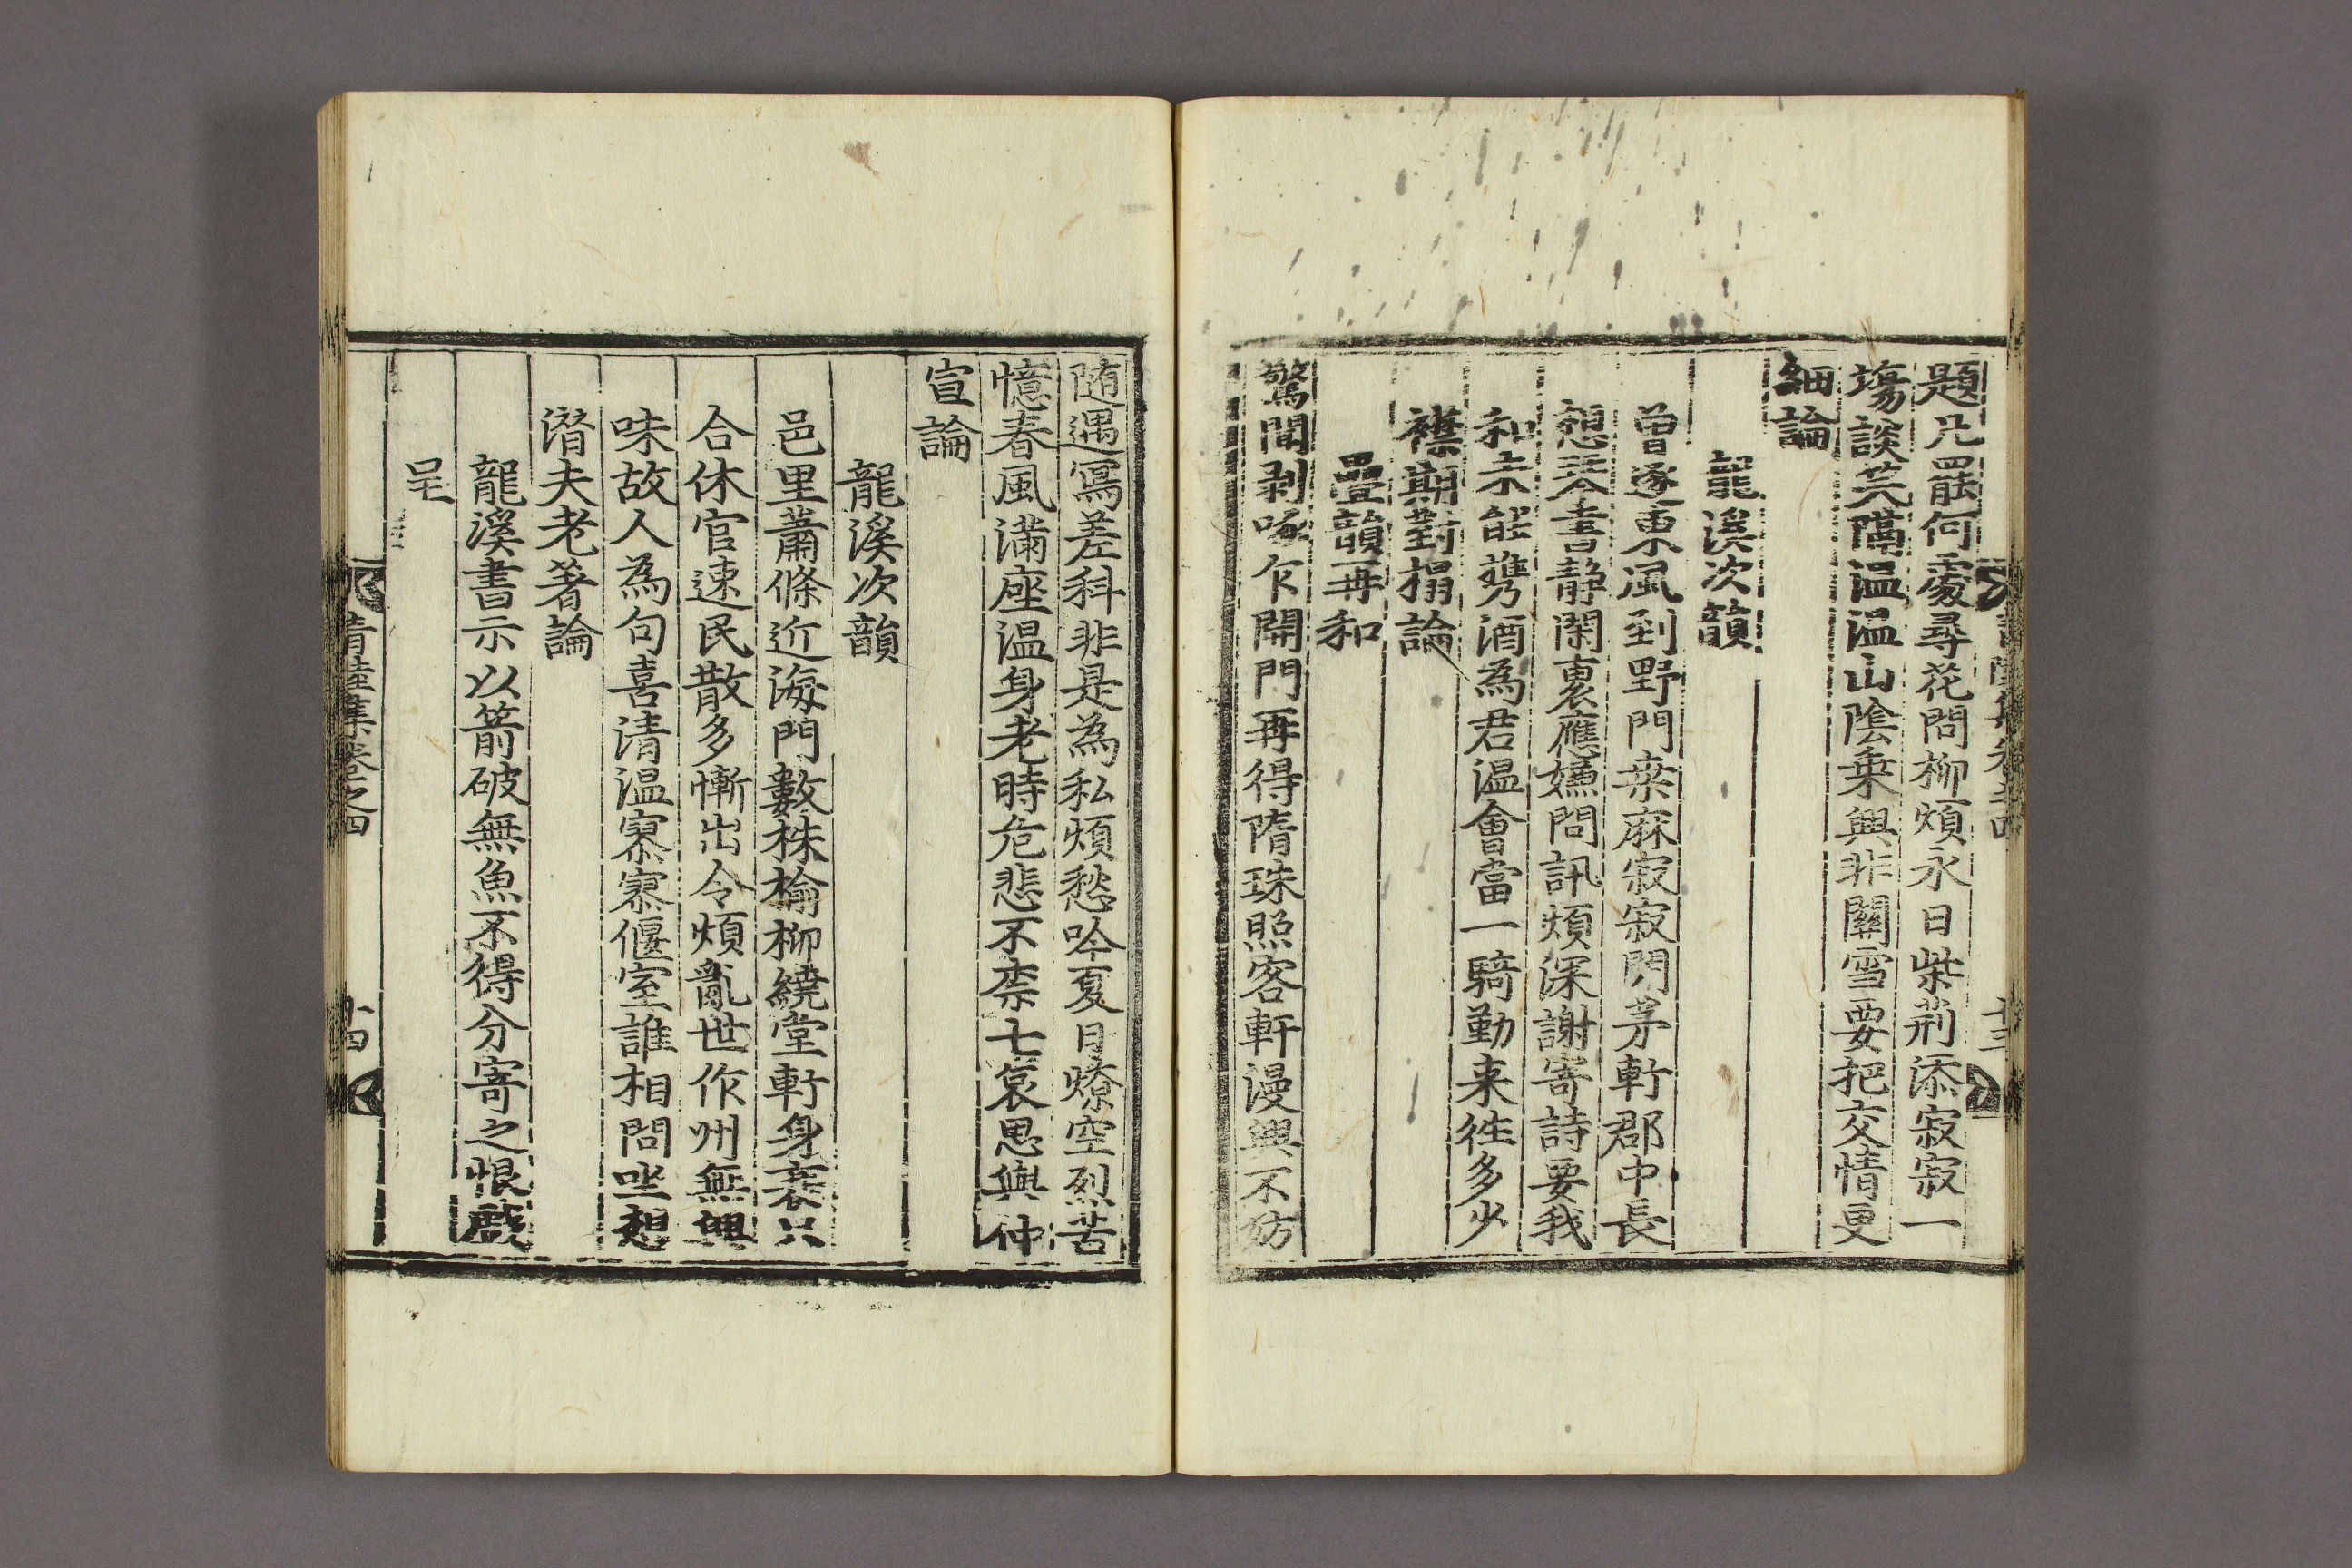 題凡罷何處尋花問柳煩永日柴荊添寂寂一
塲談笑隔溫溫山陰乗興非關雪要把交情更
細論
龍溪次韻
曾逐東風到野門桒麻寂寂閉茅軒郡中長
想琴書静閑裏應嫌問訊煩深謝寄詩要我
和未能携酒為君温會當一騎勤来徃多少
襟期對榻論
疊韻再和
驚聞剥啄乍開門再得隋珠照客軒漫興不妨
随遇寫差科非是為私煩愁吟夏日燎空烈苦
憶春風滿座温身老時危悲不柰七哀思與仲
宣論
龍溪次韻
邑里蕭條近海門數株榆柳繞堂軒身衰只
合休官速民散多慚出令煩亂世作州無興
味故人為句喜清温寥寥偃室誰相問坐想
潛夫老著論
龍溪書示以箭破無魚不得分寄之恨戲
呈
青陸集卷之四
十四